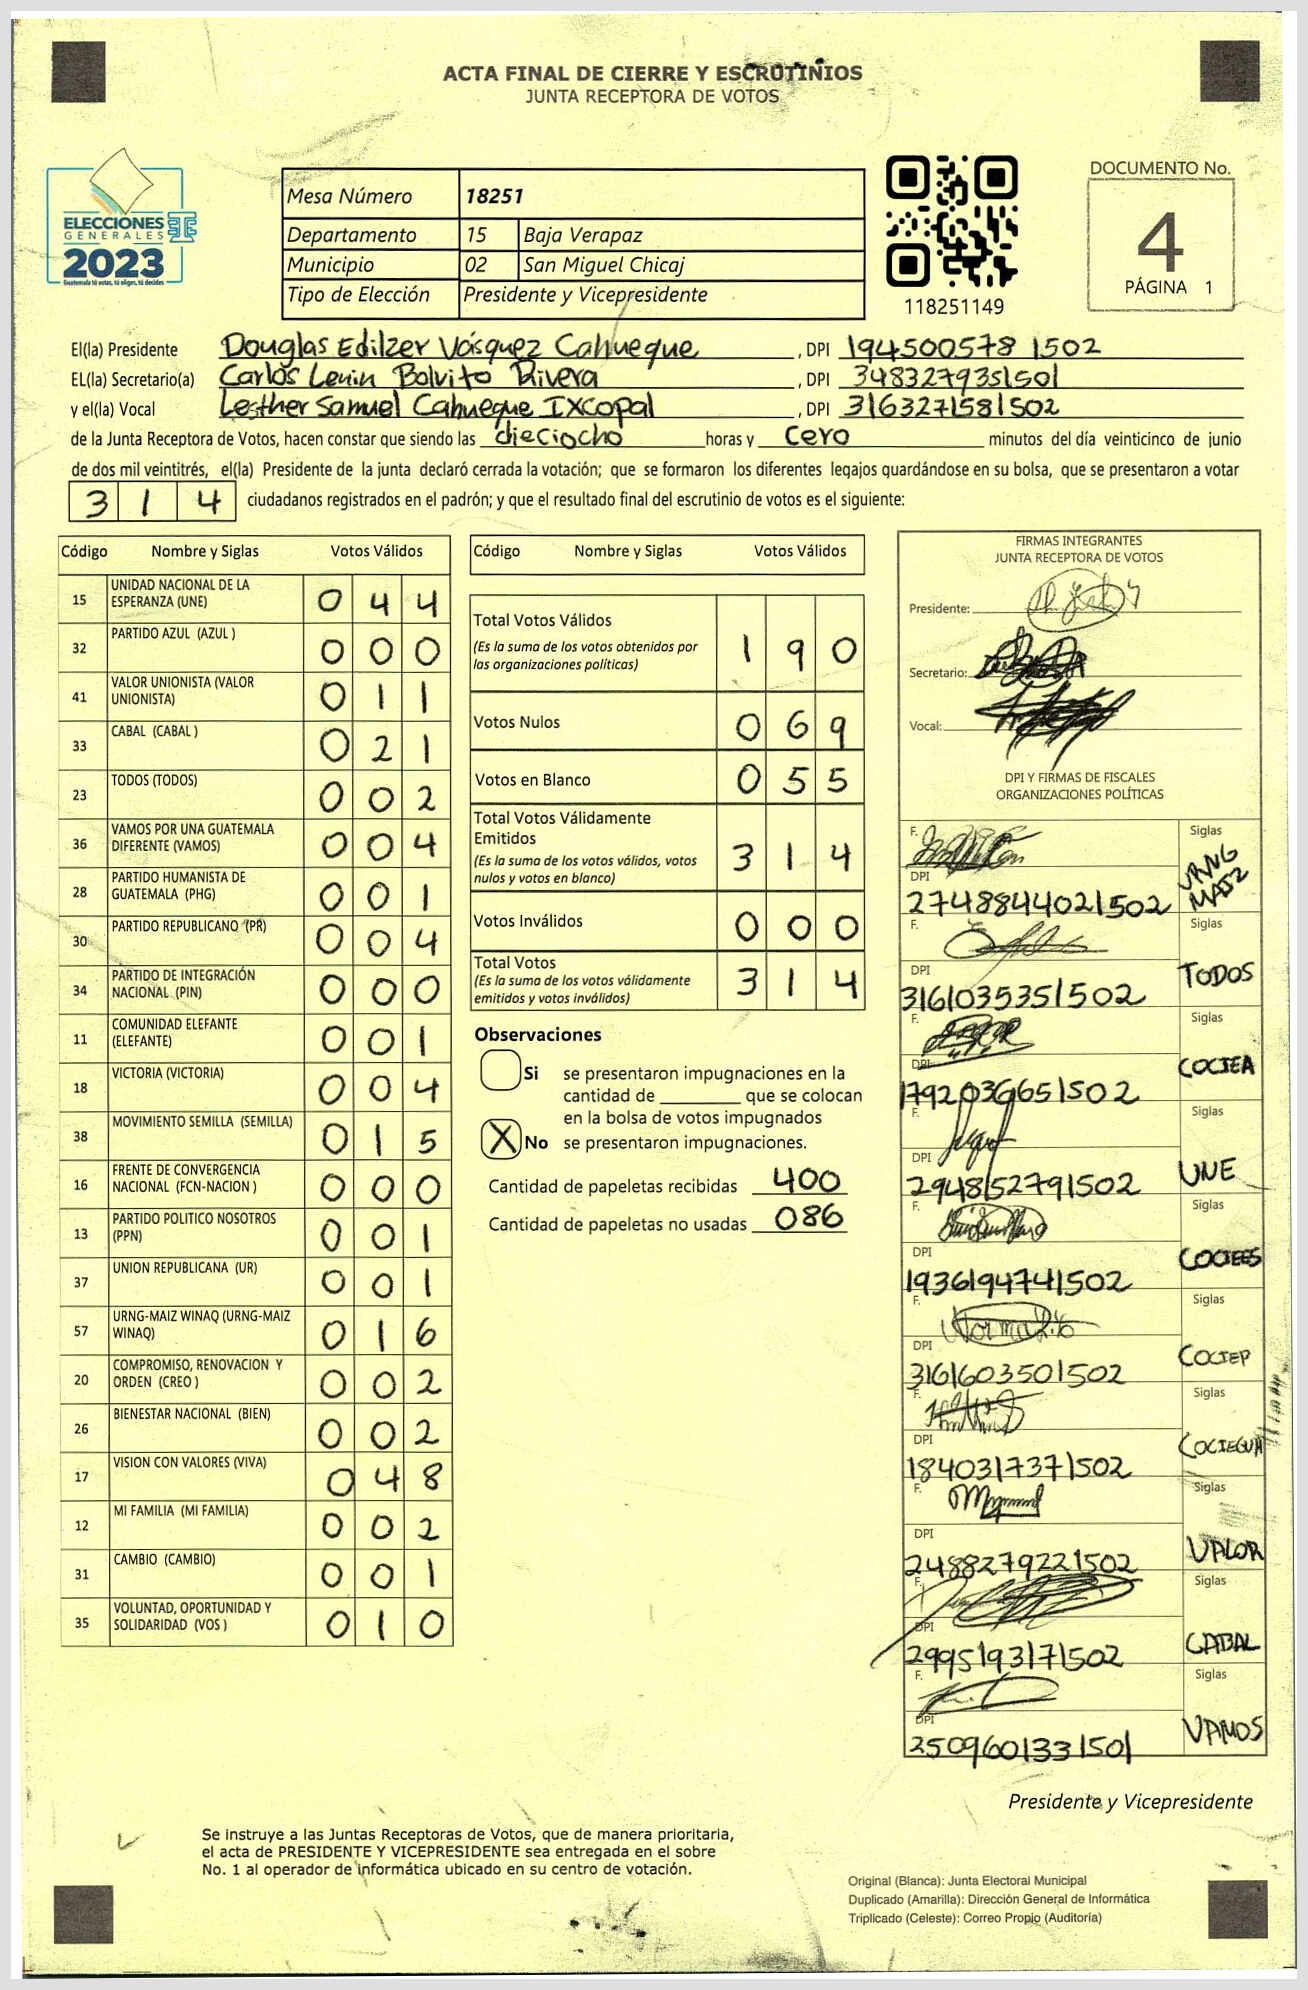 ACTA FINAL DE CIERRE Y ESCRUTINIOS
JUNTA RECEPTORA DE VOTOS
ELECCIONES
GENERALES
2023
Guatemala tú votas, tú eliges, tú decides
Mesa Número 18251
Departamento 15 Baja Verapaz
Municipio 02 San Miguel Chicaj
Tipo de Elección Presidente y Vicepresidente
118251149
DOCUMENTO No.
4
PÁGINA 1
El(la) Presidente Douglas Edilzer Vásquez Cahueque, DPI 194500578 1502
EL(la) Secretario(a) Carlos Lenin Bolvito Rivera, DPI 3483279351501
y el(la) Vocal Lesther Samuel Cahueque Ixcopal, DPI 3163271581502
de la Junta Receptora de Votos, hacen constar que siendo las dieciocho horas y cero minutos del día veinticinco de junio
de dos mil veintitrés, el(la) Presidente de la junta declaró cerrada la votación; que se formaron los diferentes legajos guardándose en su bolsa, que se presentaron a votar
3 1 4 ciudadanos registrados en el padrón; y que el resultado final del escrutinio de votos es el siguiente:
Código Nombre y Siglas Votos Válidos
15 UNIDAD NACIONAL DE LA ESPERANZA (UNE) 0 4 4
32 PARTIDO AZUL (AZUL ) 0 0 0
41 VALOR UNIONISTA (VALOR UNIONISTA) 0 1 1
33 CABAL (CABAL ) 0 2 1
23 TODOS (TODOS) 0 0 2
36 VAMOS POR UNA GUATEMALA DIFERENTE (VAMOS) 0 0 4
28 PARTIDO HUMANISTA DE GUATEMALA (PHG) 0 0 1
30 PARTIDO REPUBLICANO (PR) 0 0 4
34 PARTIDO DE INTEGRACIÓN NACIONAL (PIN) 0 0 0
11 COMUNIDAD ELEFANTE (ELEFANTE) 0 0 1
18 VICTORIA (VICTORIA) 0 0 4
38 MOVIMIENTO SEMILLA (SEMILLA) 0 1 5
16 FRENTE DE CONVERGENCIA NACIONAL (FCN-NACION ) 0 0 0
13 PARTIDO POLITICO NOSOTROS (PPN) 0 0 1
37 UNION REPUBLICANA (UR) 0 0 1
57 URNG-MAIZ WINAQ (URNG-MAIZ WINAQ) 0 1 6
20 COMPROMISO, RENOVACION Y ORDEN (CREO ) 0 0 2
26 BIENESTAR NACIONAL (BIEN) 0 0 2
17 VISION CON VALORES (VIVA) 0 4 8
12 MI FAMILIA (MI FAMILIA) 0 0 2
31 CAMBIO (CAMBIO) 0 0 1
35 VOLUNTAD, OPORTUNIDAD Y SOLIDARIDAD (VOS ) 0 1 0
Código Nombre y Siglas Votos Válidos
Total Votos Válidos 1 9 0
(Es la suma de los votos obtenidos por
las organizaciones políticas)
Votos Nulos 0 6 9
Votos en Blanco 0 5 5
Total Votos Válidamente
Emitidos 3 1 4
(Es la suma de los votos válidos, votos
nulos y votos en blanco)
Votos Inválidos 0 0 0
Total Votos 3 1 4
(Es la suma de los votos válidamente
emitidos y votos inválidos)
Observaciones
Si se presentaron impugnaciones en la
cantidad de ________ que se colocan
en la bolsa de votos impugnados
X No se presentaron impugnaciones.
Cantidad de papeletas recibidas 400
Cantidad de papeletas no usadas 086
FIRMAS INTEGRANTES
JUNTA RECEPTORA DE VOTOS
Presidente:
Secretario:
Vocal:
DPI Y FIRMAS DE FISCALES
ORGANIZACIONES POLÍTICAS
F. Siglas
DPI URNG MAIZ
2748844021502
F. Siglas
DPI TODOS
3161035351502
F. Siglas
DPI COCIEA
1792036651502
F. Siglas
DPI UNE
2948152791502
F. Siglas
DPI COCIEES
1936194741502
F. Siglas
DPI COCIEP
3161603501502
F. Siglas
DPI COCIEGUA
1840317371502
F. Siglas
DPI VALOR
2488279221502
F. Siglas
DPI CABAL
2995193171502
F. Siglas
DPI VAMOS
2509601331501
Presidente y Vicepresidente
Se instruye a las Juntas Receptoras de Votos, que de manera prioritaria,
el acta de PRESIDENTE Y VICEPRESIDENTE sea entregada en el sobre
No. 1 al operador de informática ubicado en su centro de votación.
Original (Blanca): Junta Electoral Municipal
Duplicado (Amarilla): Dirección General de Informática
Triplicado (Celeste): Correo Propio (Auditoría)